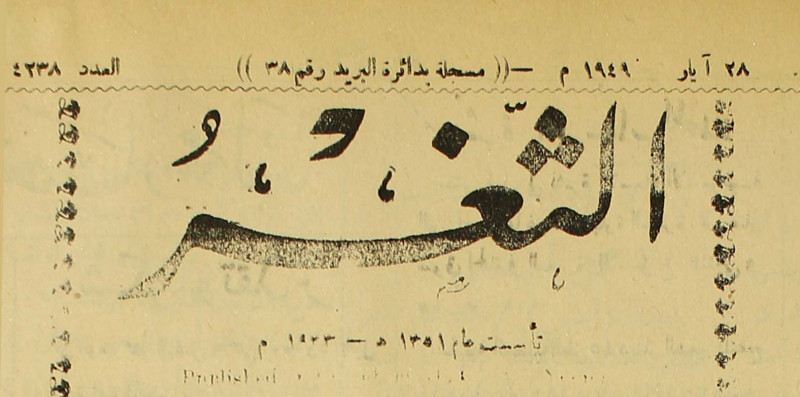 ٢٨ آيار ١٩٤٩ م —(( مسجلة بدائرة البريد رقم ٣٨ )) العدد ٤٢٣٨
الثَّغْرُ
تأسست عام ١٣٥١ هـ — ١٩٣٣ م
Published